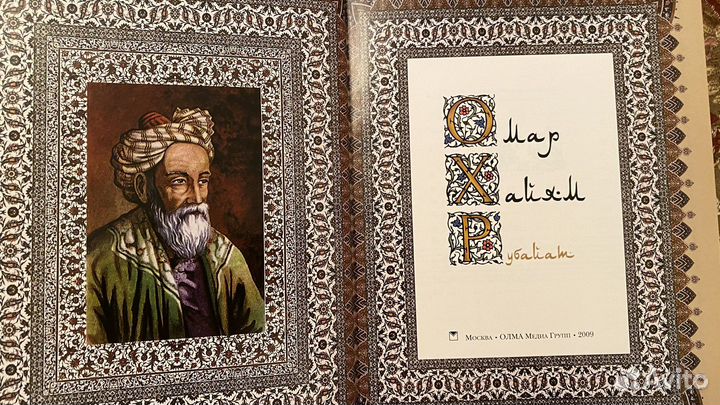 Омар
Хайям
Рубаiат
Москва • ОЛМА Медиа Групп • 2009
Avito